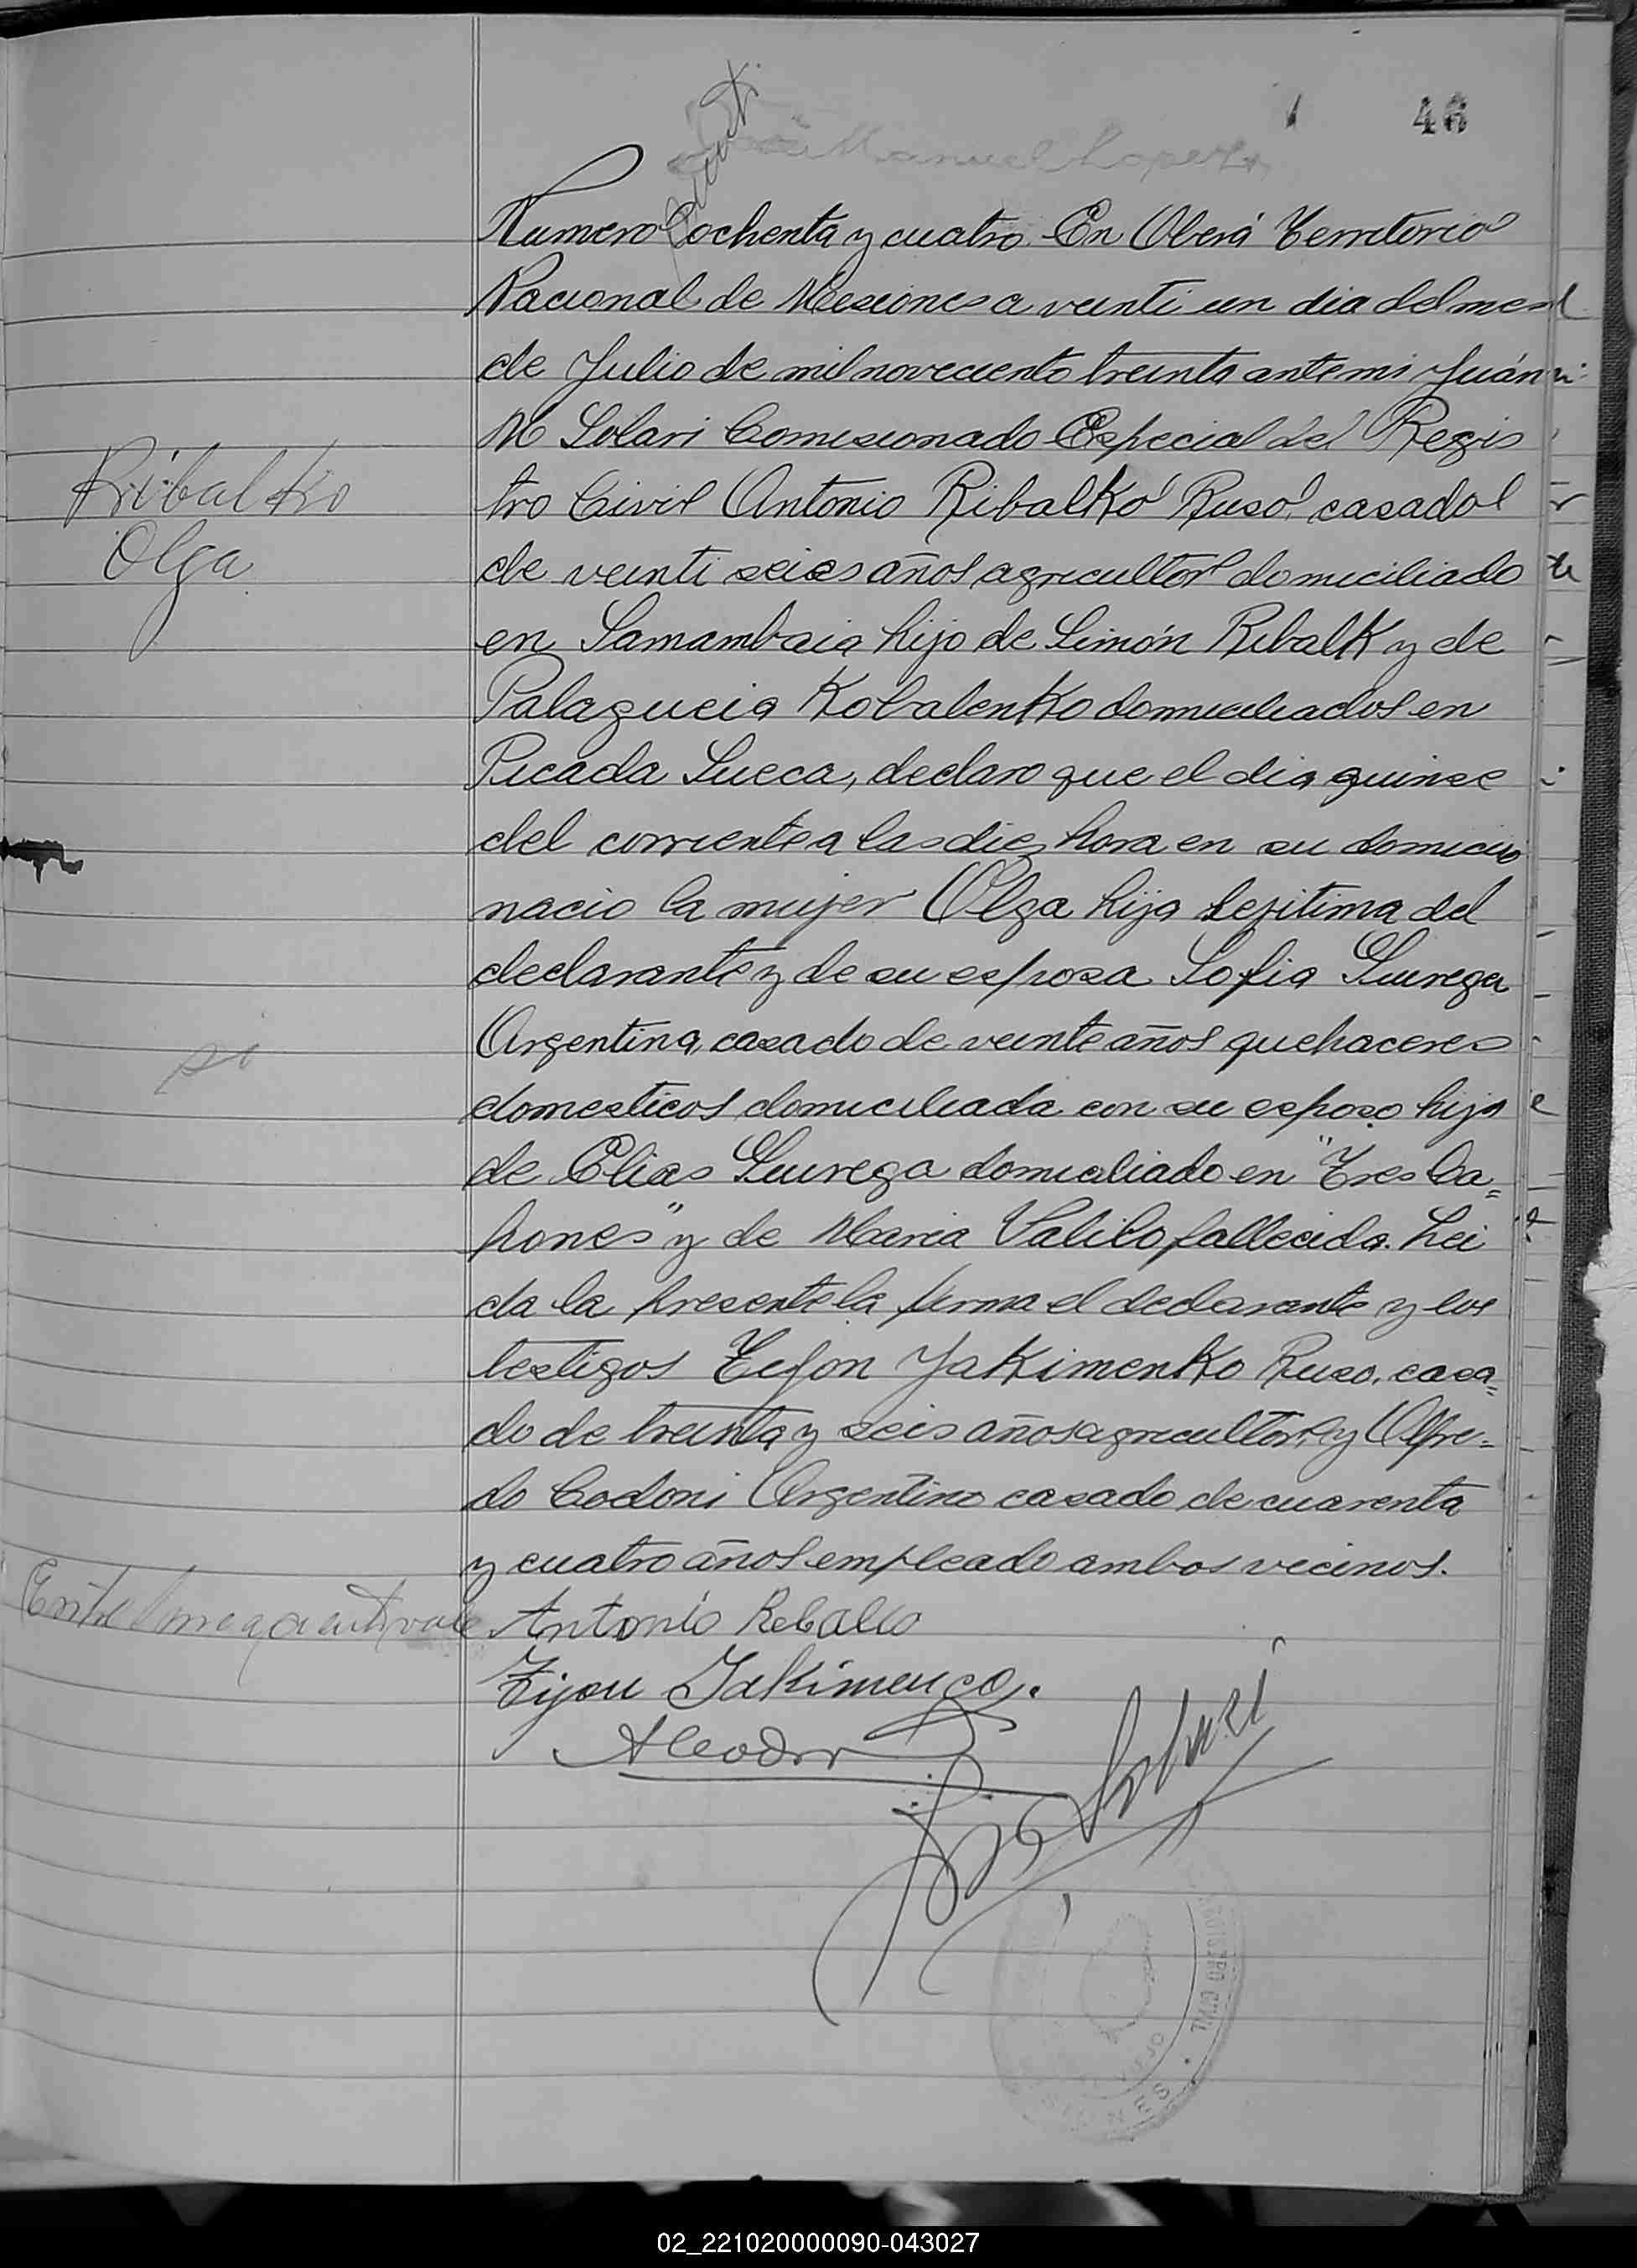 46
Manuel Lopez
Numero ochenta y cuatro En Oberá Territorio
Nacional de Misiones a veinti un dia del mes
de Julio de mil noveciento treinta ante mi Juán
M Solari Comisionado Especial del Regis
tro Civil Antonio Ribalko Ruso casado
de veinti seies años agricultor domiciliado
en Samambaia hijo de Simón Ribalk y de
Palagueia Kobalenko domiciliados en
Picada Sueca, declaro que el dia quinse
del corriente a las diez hora en su domicilio
nacio la mujer Olga hija legitima del
declarante y de su esposa Sofia
Argentina casado de veinte años quehaceres
domesticos domiciliada con su esposo hija
de Elias domiciliado en "Tres Ca=
pones" y de Maria Valilo fallecida. Lei
da la presente la firma el declarante y los
testigos Tifon Yakimenko Ruso, casa=
do de treinta y seis años agricultor y Alfre=
do Codoni Argentino casado de cuarenta
y cuatro años empleado ambos vecinos.
Ribalko
Olga
Antonio Rebalco
Tijon Jakimenco.
Solari
REGISTRO CIVIL
02_221020000090-043027